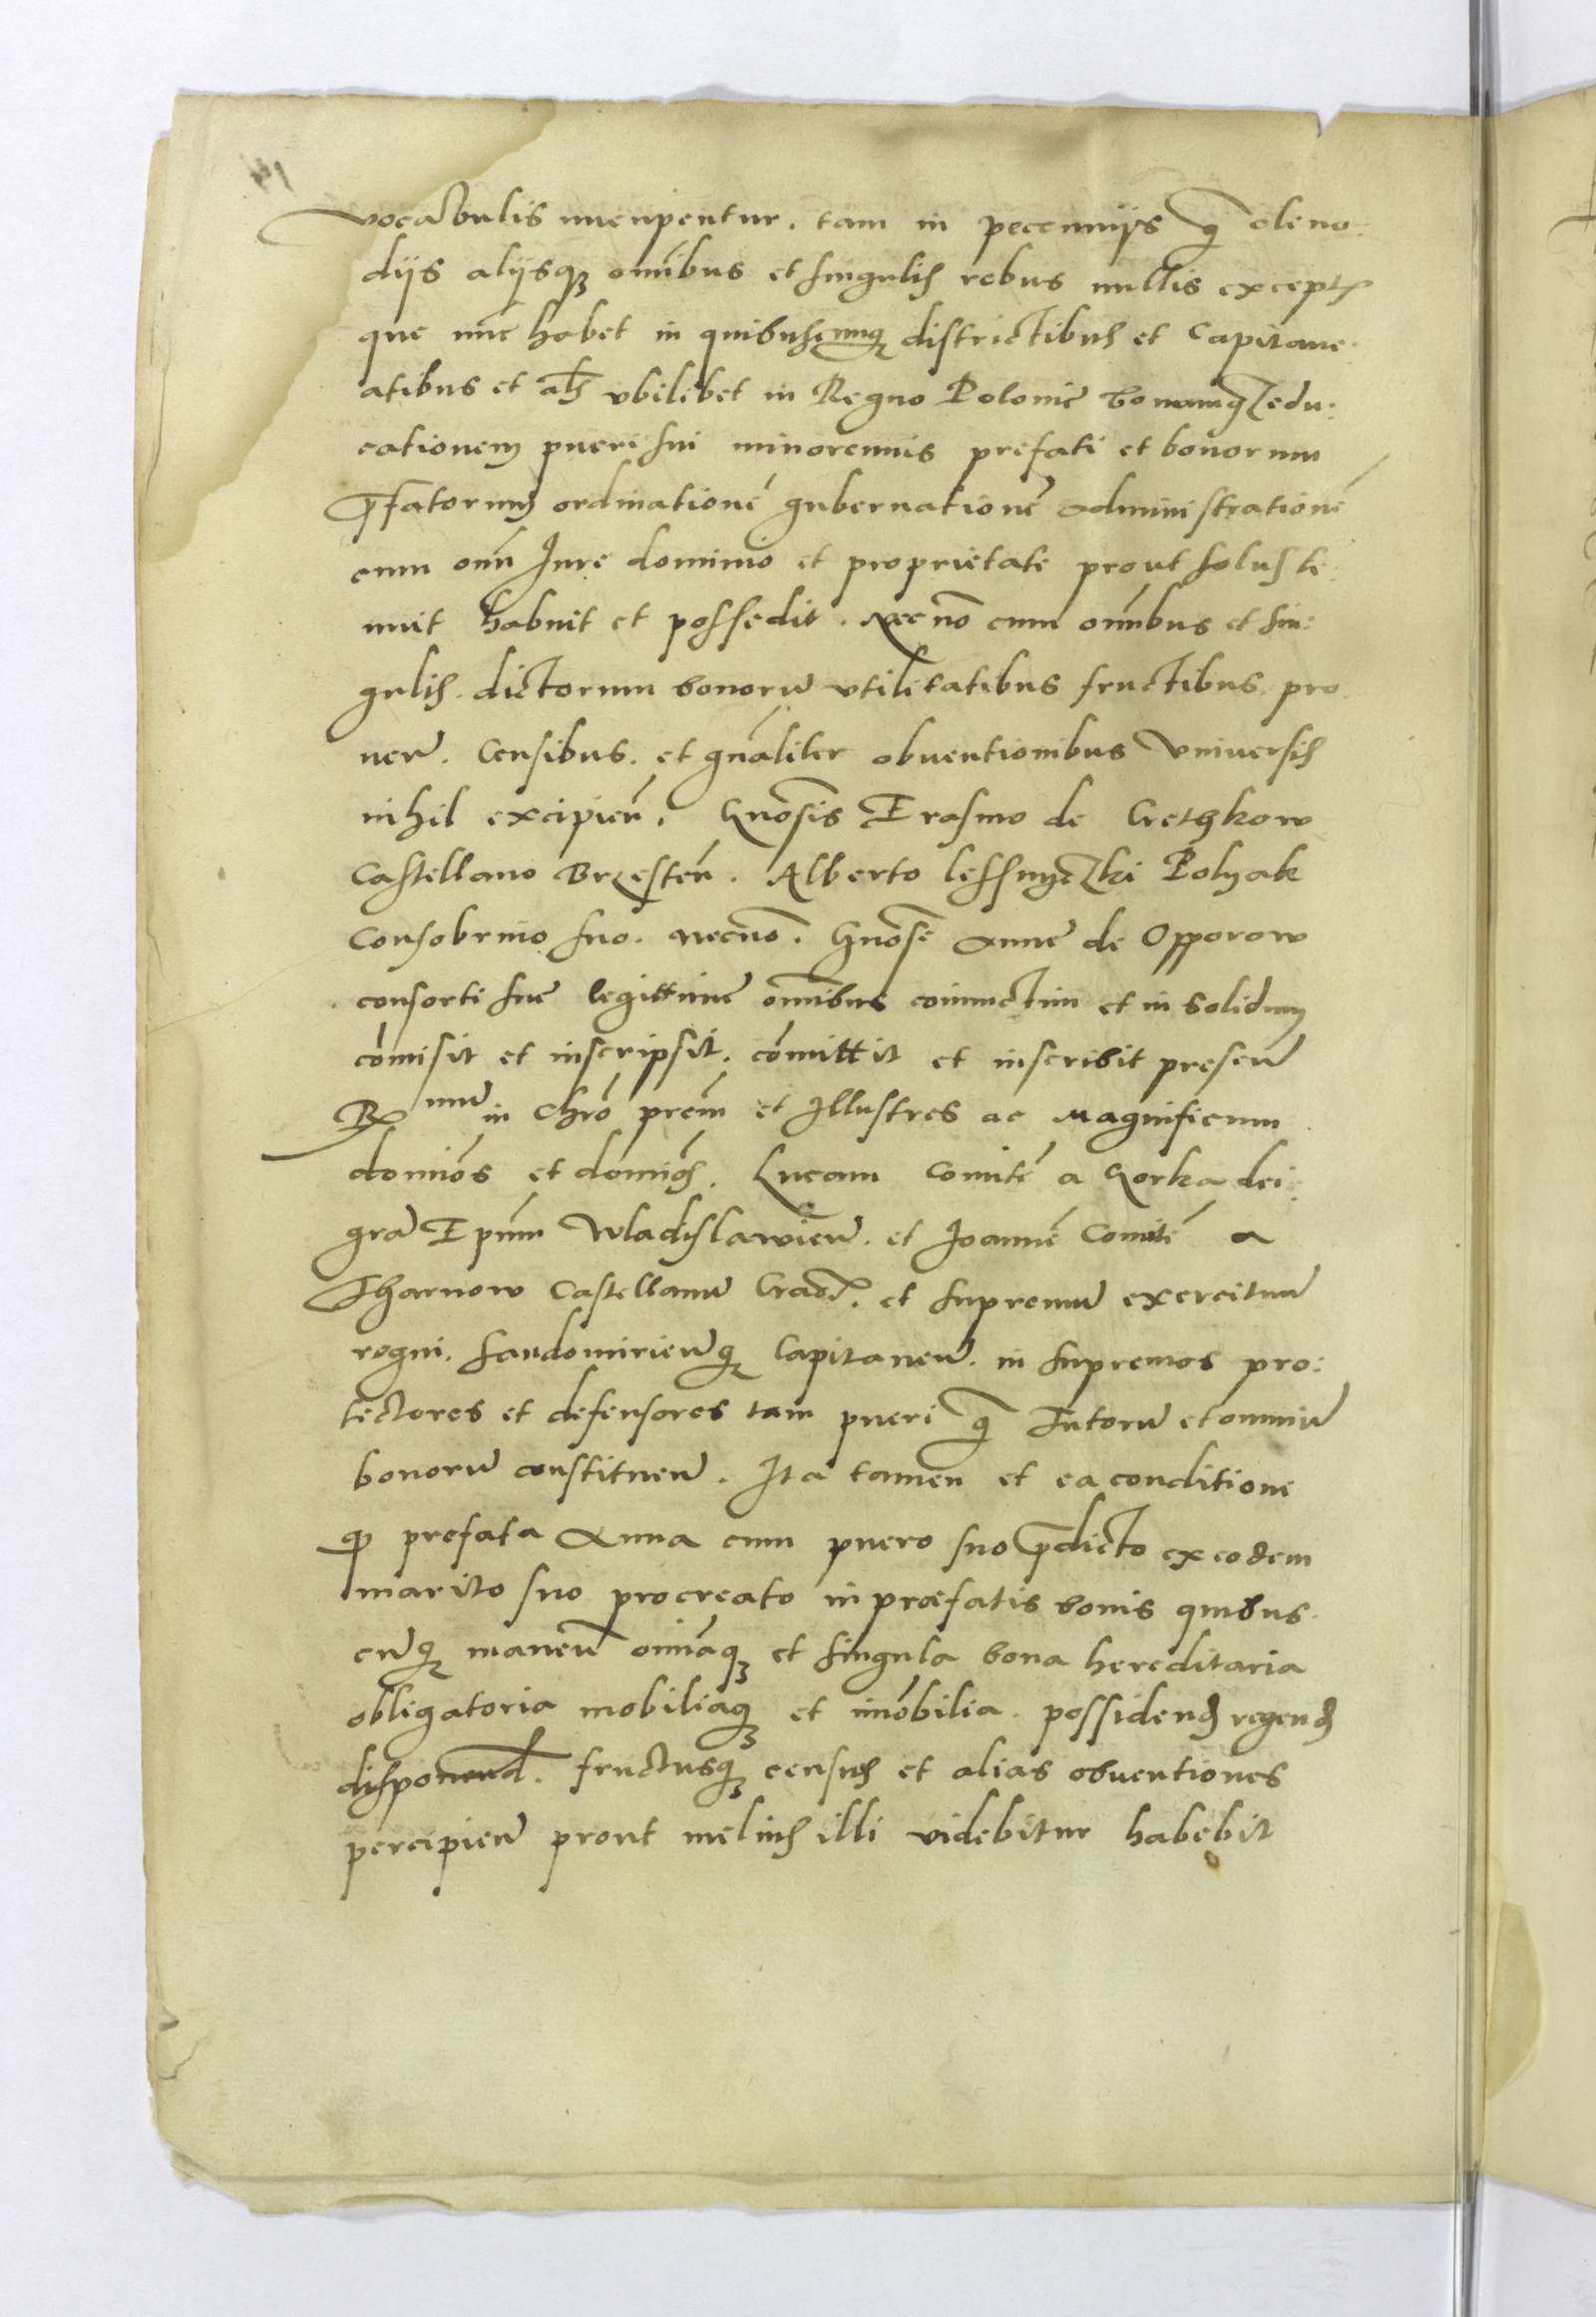 vocabulis nuncupentur. tam in peccuniȷs q̃ cleno:
dijs alijsqꝫ om̃ibus et singulis rebus nullis except̃
que nũc habet in quibuscunqꝫ districtibus et Capitane:
atibus et al̃s vbilibet in Regno Poloniẽ bonamqꝫ edu:
cationem pueri sui minorennis prefati et bonorum
p̃fatorum ordinationẽ gubernationẽ administrationẽ
cum om̃i Jure dominio et proprietate prout solus te:
nuit habuit et possedit. Necnõ cum om̃ibus et sin:
gulis. dictorum bonorũ vtilitatibus fructibus. pro
uen̄. Censibus. et gñaliter obuentionibus vniuersis
nihil excipien̄. Gñosis Erasmo de Crethkow
Castellano Brzesten̄. Alberto lessnyczki Polyak
Consobrino suo. necnõ. Gñose Anne de Opporow
consorti sue legittime om̃ibus coniunctim et in solidum
cõmisit et inscripsit. cõmittit et inscribit presen̄
R mũ in Chrõ prẽm et Illustres ac Magnificum
domiõs et domiõs. Lucam Comitẽ a Gorka dei
gra Epũm Wladislawien̄. et Joannẽ Comitẽ a
Tharnow Castellanũ Crac̃. et supremũ exercituũ
regni. Sandomirien̄qꝫ Capitaneũ. in supremos pro:
tectores et defensores tam pueri q̃ Tutorũ et omniũ
bonorũ constituen̄. Ita tamen et ea conditione
qp prefata Anna cum puero suo p̃dicto ex eodem
marito suo procreato in præfatis bonis quibus
cũqꝫ manen̄ oim̃aqꝫ et singula bona hereditaria
obligatoria mobiliaqꝫ et imõbilia. possidend̃ regend̃
disponend̃. fructusqꝫ census et alias obuentiones
percipien̄ prout melius illi videbitur habebit